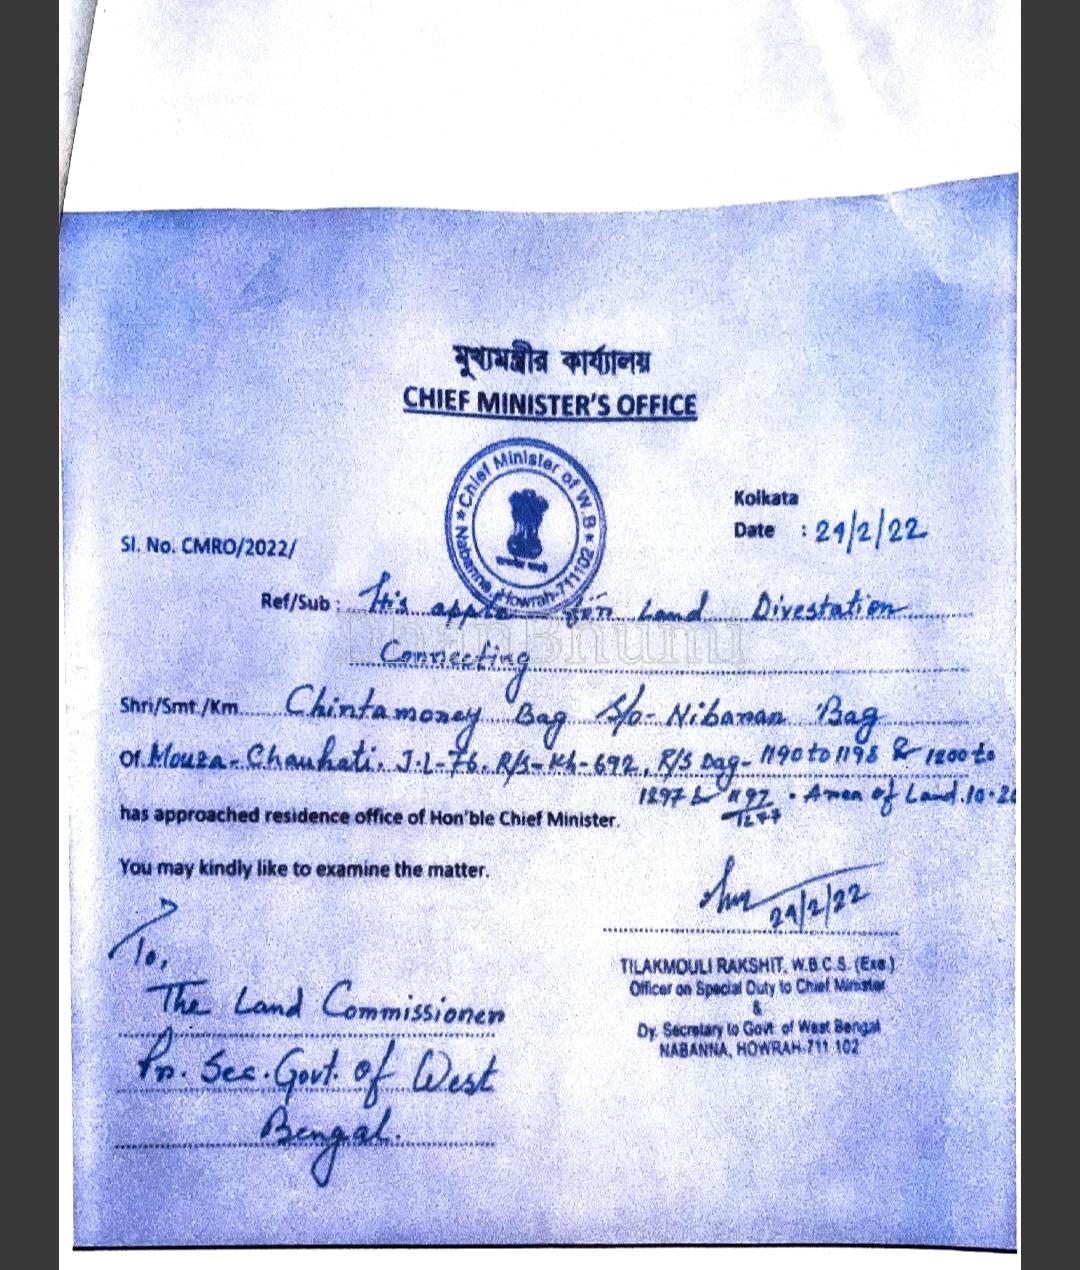 মুখ্যমন্ত্রীর কার্য্যালয়
CHIEF MINISTER'S OFFICE
Chief Minister of W.B
Nabanna, Howrah-711102
Kolkata
Date : 21/2/22
Sl. No. CMRO/2022/
Ref/Sub : Land Divestation
Connecting
Shri/Smt./Km. Chintamoney Bag S/o- Nibanan Bag
Of Mouza - Chauhati, J.L-76, R/S-Kh-692, R/S Dag- 1190 to 1198 & 1200 to
1297 & 1197/1277 . Area of Land. 10.20
has approached residence office of Hon'ble Chief Minister.
You may kindly like to examine the matter.
21/2/22
To,
TILAKMOULI RAKSHIT, W.B.C.S. (Exe.)
Officer on Special Duty to Chief Minister
&
Dy. Secretary to Govt. of West Bengal
NABANNA, HOWRAH-711 102
The Land Commissioner
Pr. Sec. Govt. of West
Bengal.